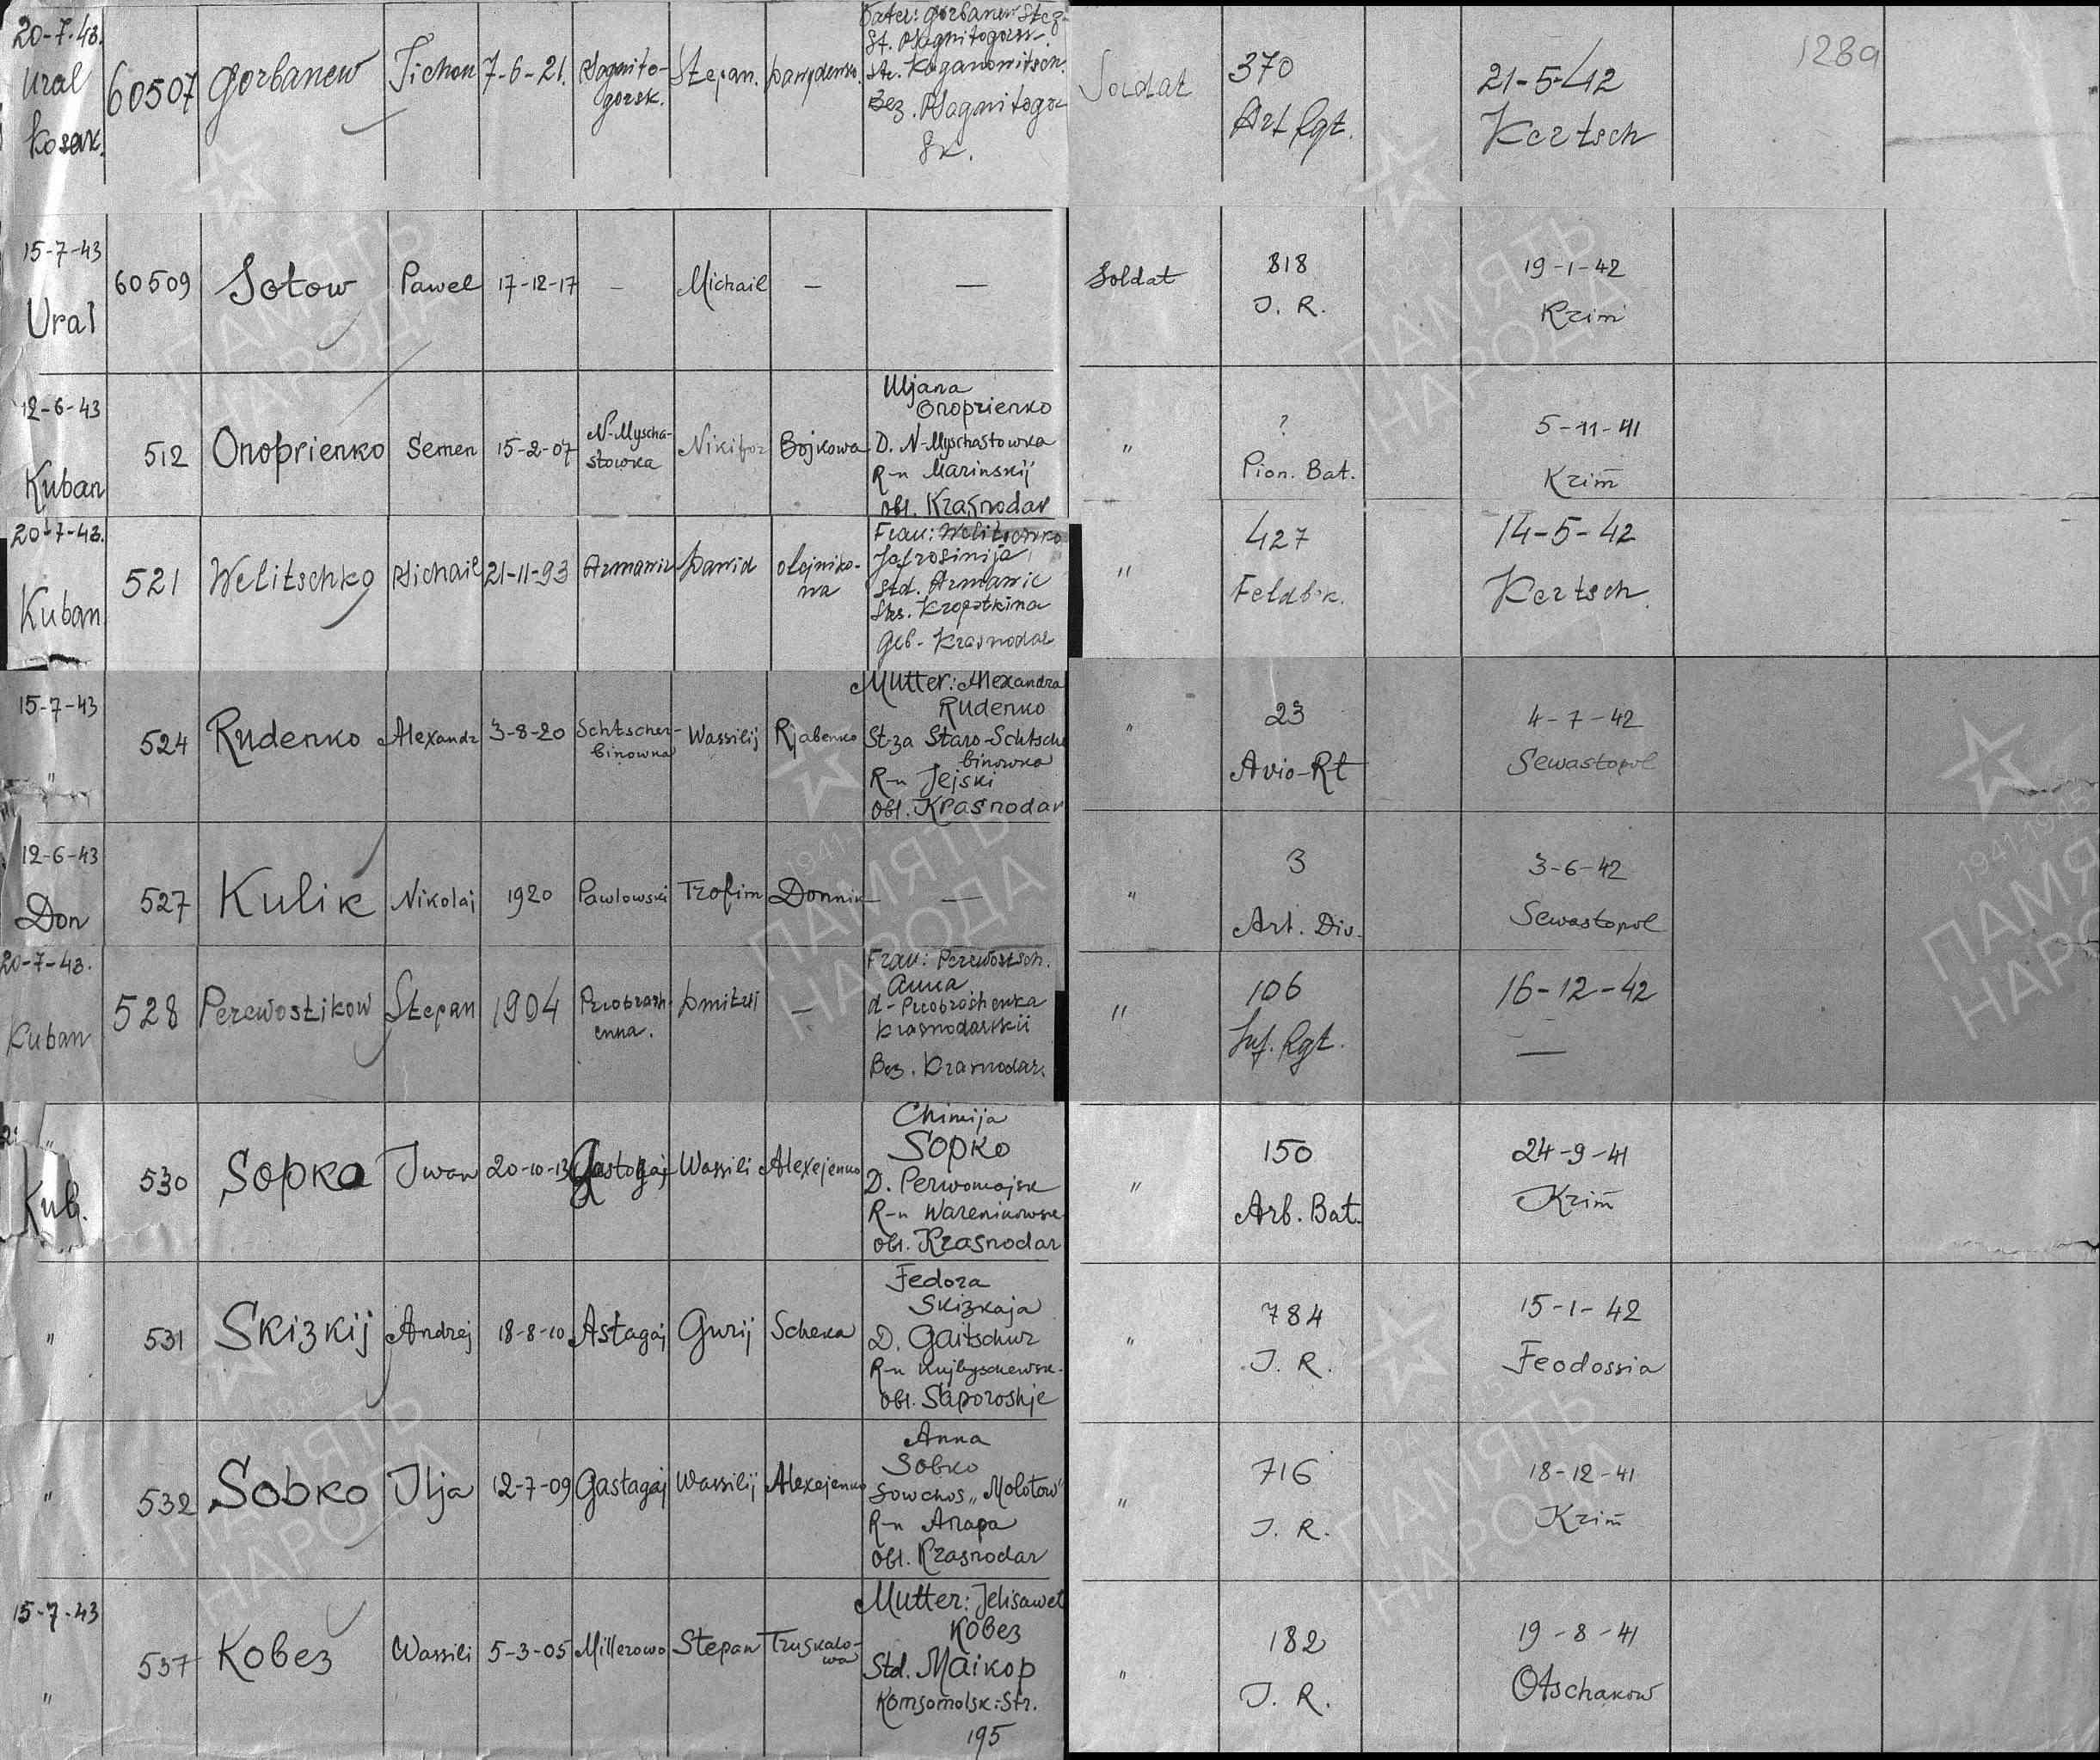 20-7-43.
Ural
Kosak.
60507
Gorbanew
Tichon
7-6-21.
Magnito-
gorsk.
Stepan.
Dawydenko.
Vater: Gorbanew Step-
St. Magnitogorsk.
Str. Kaganowitsch.
Bez. Magnitogor
sk.
Soldat
370
Art Rgt.
21-5-42
Kertsch
1289
15-7-43
Ural
60509
Sotow
Pawel
17-12-17
–
Michail
–
—
Soldat
818
J. R.
19-1-42
Krim
12-6-43
Kuban
512
Onoprienko
Semen
15-2-07
N-Myscha-
stowka
Nikifor
Bojkowa
Uljana
Onoprienko
D. N-Myschastowka
R-n Marinskij
Obl. Krasnodar
"
?
Pion. Bat.
5-11-41
Krim
20-7-43.
Kuban
521
Welitschko
Michail
21-11-93
Armawir
Dawid
Olejniko-
wa
Frau: Welitschko
Jefrosinija
Std. Armawir
Str. Kropotkina
Geb. Krasnodar
"
427
14-5-42
Kertsch
15-7-43
"
524
Rudenko
Alexandr
3-8-20
Schtscher-
binowka
Wassilij
Rjabenko
Mutter: Alexandra
Rudenko
St-za Staro-Schtsche
binowka
R-n Jejski
Obl. Krasnodar
"
23
Avio-Rt
4-7-42
Sewastopol
12-6-43
Don
527
Kulik
Nikolaj
1920
Pawlowski
Trofim
Donnik
—
"
3
Art. Div.
3-6-42
Sewastopol
20-7-43.
Kuban
528
Perewostikow
Stepan
1904
Preobrash
enna.
Dmitrii
–
Frau: Perewostsch.
Anna
d-Preobroshenka
Krasnodarskii
Bez. Krasnodar.
"
106
Inf. Rgt.
16-12-42
—
"
Kub.
530
Sopko
Iwan
20-10-13
Gastogaj
Wassili
Alexejenko
Chimija
Sopko
D. Perwomajsk
R-n Warenikowsk
Obl. Krasnodar
"
150
Arb. Bat.
24-9-41
Krim
"
531
Skizkij
Andrej
18-8-10
Astagaj
Gurij
Scheka
Fedora
Skizkaja
D. Gaitschur
R-n Kujbyschewsk.
Obl. Saporoshje
"
784
J. R.
15-1-42
Feodossia
"
532
Sobko
Ilja
12-7-09
Gastagaj
Wassilij
Alexejenko
Anna
Sobko
Sowchos „Molotow"
R-n Anapa
Obl. Krasnodar
"
716
J. R.
18-12-41
Krim
15-7-43
"
537
Kobez
Wassili
5-3-05
Millerowo
Stepan
Truskalo-
wa
Mutter: Jelisawet
Kobez
Std. Maikop
Komsomolsk: Str.
195
"
182
J. R.
19-8-41
Otschakow
1941 1945
ПАМЯТЬ
НАРОДА